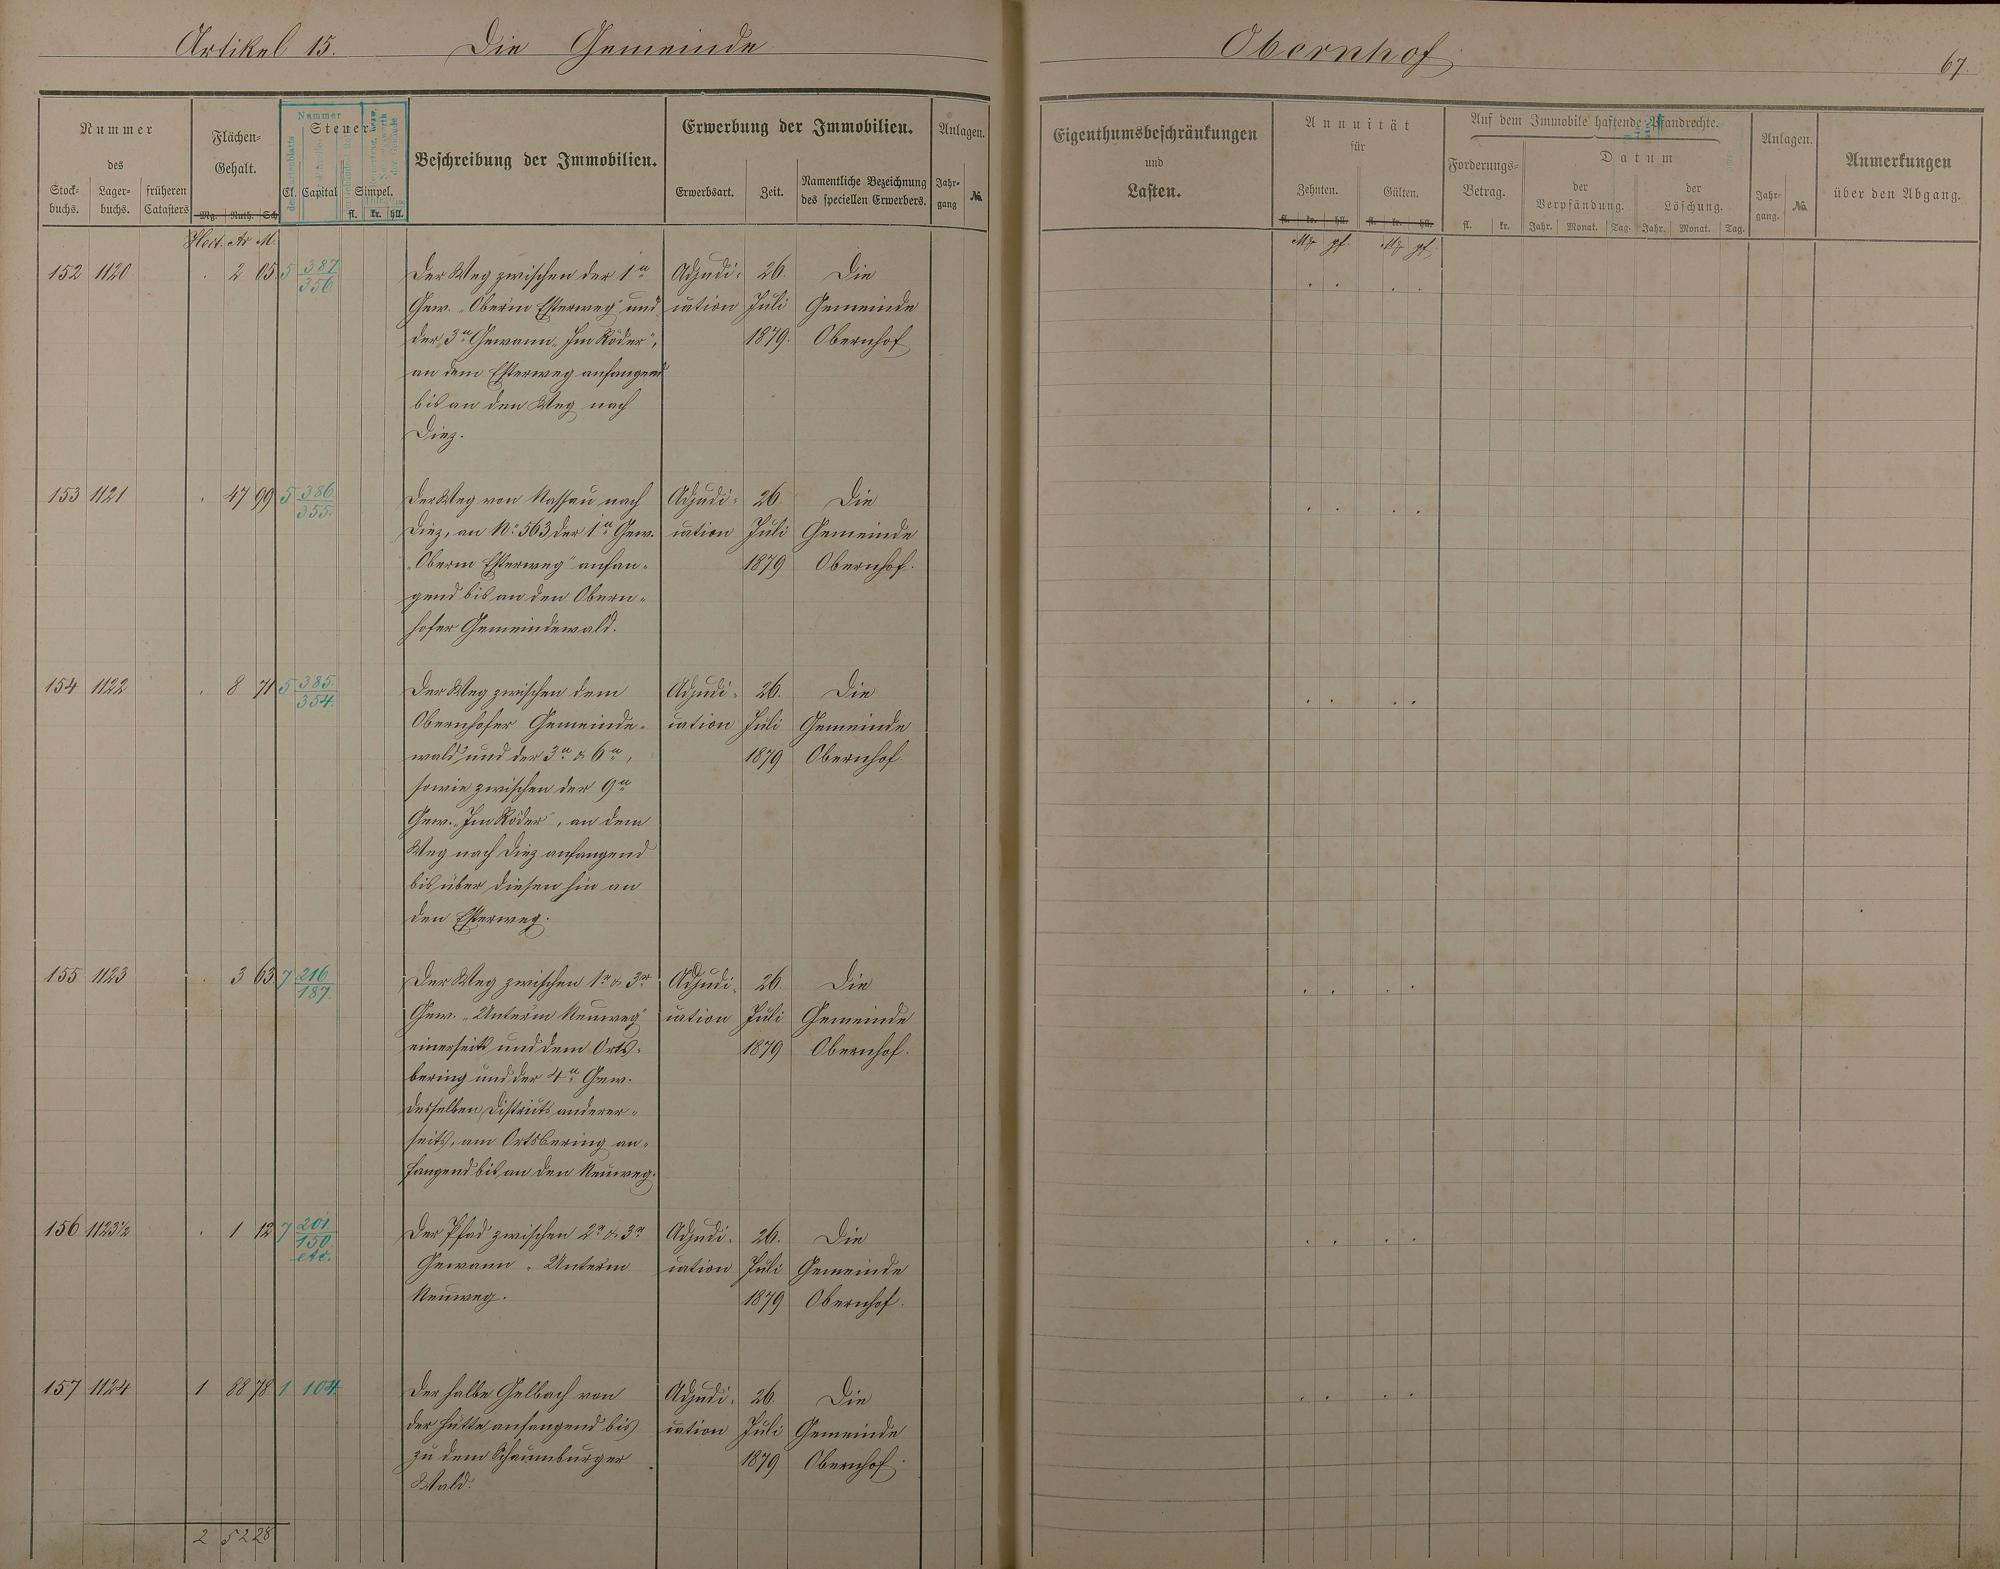 Artikel 15. Die Gemeinde Obernhof 67.
Nummer des
Stock-buchs. Lager-buchs. früheren Catasters
Flächen-Gehalt.
Mg. Ruth. Sch
Hect. Ar M.
Nummer
Steuer
Cl. Capital Simpel.
fl. kr. hll.
Beschreibung der Immobilien.
Erwerbung der Immobilien.
Erwerbsart. Zeit. Namentliche Bezeichnung des speciellen Erwerbers.
Anlagen.
Jahr-gang №
Eigenthumsbeschränkungen
und
Lasten.
Annuität
für
Zehnten. Gülten.
fl. kr. hll. fl. kr. hll.
Mk pf. Mk pf.
Auf dem Immobile haftende Pfandrechte.
Forderungs-Betrag.
fl. kr.
Datum
der Verpfändung. der Löschung.
Jahr. Monat. Tag. Jahr. Monat. Tag.
Anlagen.
Jahr-gang. №
Anmerkungen
über den Abgang.
152 1120 . 2 05 5 387/356 Der Weg zwischen der 1n Adjudi- 26. Die
Gew. „Oberm Esterweg" und cation Juli Gemeinde
der 3n Gewann „Im Röder", 1879. Obernhof
an dem Esterweg anfangend
bis an den Weg nach
Diez.
153 1121 . 47 99 5 386/355. Der Weg von Nassau nach Adjudi- 26. Die
Diez, an No. 563 der 1n Gew. cation Juli Gemeinde
„Oberm Esterweg" anfan- 1879 Obernhof.
gend bis an den Obern-
hofer Gemeindewald.
154 1122 . 8 71 5 385./354. Der Weg zwischen dem Adjudi- 26. Die
Obernhofer Gemeinde- cation Juli Gemeinde
wald und der 3n & 6n, 1879 Obernhof.
sowie zwischen der 9n
Gew. „Im Röder", an dem
Weg nach Diez anfangend
bis über diesen hin an
den Esterweg.
155 1123 . 3 63 7 216/187. Der Weg zwischen 1r & 3r Adjudi- 26. Die
Gew. „Unterm Neuweg" cation Juli Gemeinde
einerseits und dem Orts- 1879 Obernhof.
bering und der 4n Gew.
desselben Districts anderer-
seits, am Ortsbering an-
fangend bis an den Neuweg.
156 1123½ . 1 12 7 201/150 etc. Der Pfad zwischen 2r & 3r Adjudi- 26. Die
Gewann „Unterm cation Juli Gemeinde
Neuweg. 1879 Obernhof.
157 1124 1 88 78 1 104 Der halbe Gelbach von Adjudi- 26. Die
der Hütte anfangend bis cation Juli Gemeinde
zu dem Schaumburger 1879 Obernhof.
Wald.
2 52 28